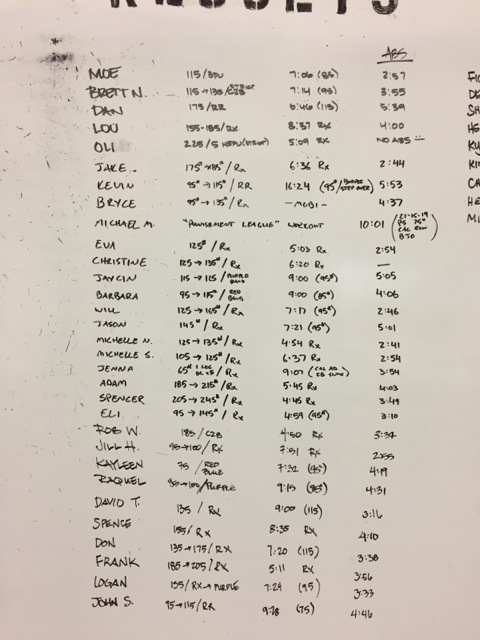 RESULTS
ABS
MOE 115/BPU 7:06 (85) 2:57
BRETT N. 115→135/C2B 7:14 (95) 3:55
DAN 175/RR 6:46 (115) 5:39
LOU 155-185/RX 8:37 RX 4:00
OLI 225/5 HSPU (STRICT) 5:09 RX NO ABS
JAKE 175#→185#/Rx 6:36 Rx 2:44
KEVIN 95#→115#/RR 16:24 (95#/ STEP OVER) 5:53
BRYCE 95#→135#/Rx -MOBI- 4:37
MICHAEL M. "AMUSEMENT LEAGUE" WORKOUT 10:01 (21-15-19
PS 75#
CAL ROW
BJO)
EVA 125#/Rx 5:03 Rx 2:54
CHRISTINE 125→135#/Rx 6:20 Rx —
JAYCIN 115→125/PURPLE BAND 9:00 (95#) 5:05
BARBARA 95→115#/RED BAND 9:00 (85#) 4:06
WILL 125→165#/Rx 7:17 (95#) 2:46
JASON 145#/Rx 7:21 (95#) 5:01
MICHELLE N. 125→135#/Rx 4:54 Rx 2:41
MICHELLE S. 105→125#/Rx 6:37 Rx 2:54
JENNA 65# 1 LEG /Rx 9:07 3:54
ADAM 185→215#/Rx 5:45 Rx 4:03
SPENCER 205→245#/Rx 4:45 Rx 3:49
ELI 95→145#/Rx 4:59 (95#) 3:10
ROB W. 185/C2B 4:50 RX 3:34
JILL H. 95→100/RX 7:51 RX 2:55
KAYLEEN 75/RED BLUE 7:32 (45#) 4:19
RAQUEL 80→100/PURPLE 9:15 (55#) 4:31
DAVID T. 135/RX 9:00 (115) 3:16
SPENCE 155/RX 8:35 RX 4:10
DON 135→175/RX 7:20 (115) 3:38
FRANK 185→205/RX 5:11 RX 3:56
LOGAN 135/RX→PURPLE 7:24 (95) 3:33
JOHN S. 95→115/RR 9:18 (75) 4:46